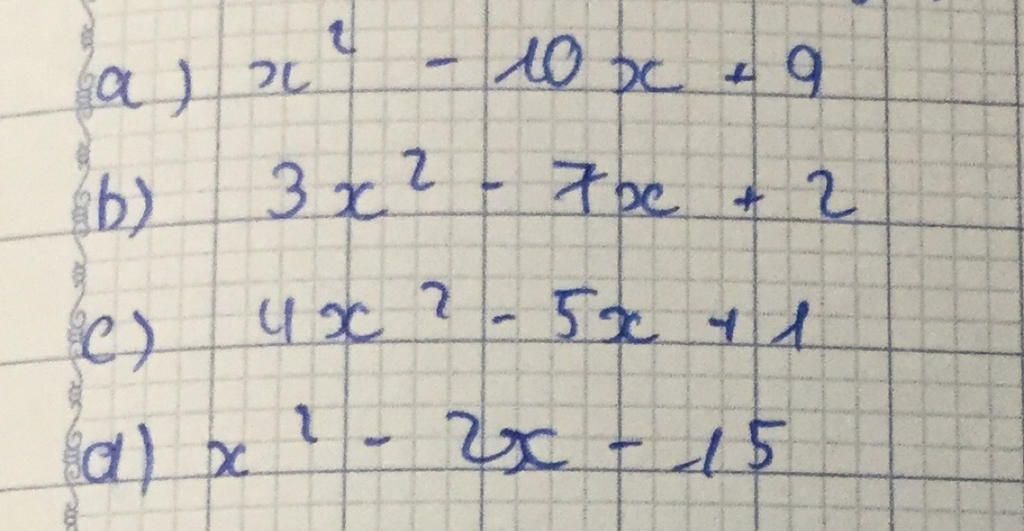 a) x² - 10x + 9
b) 3x² - 7x + 2
c) 4x² - 5x + 1
d) x² - 2x - 15